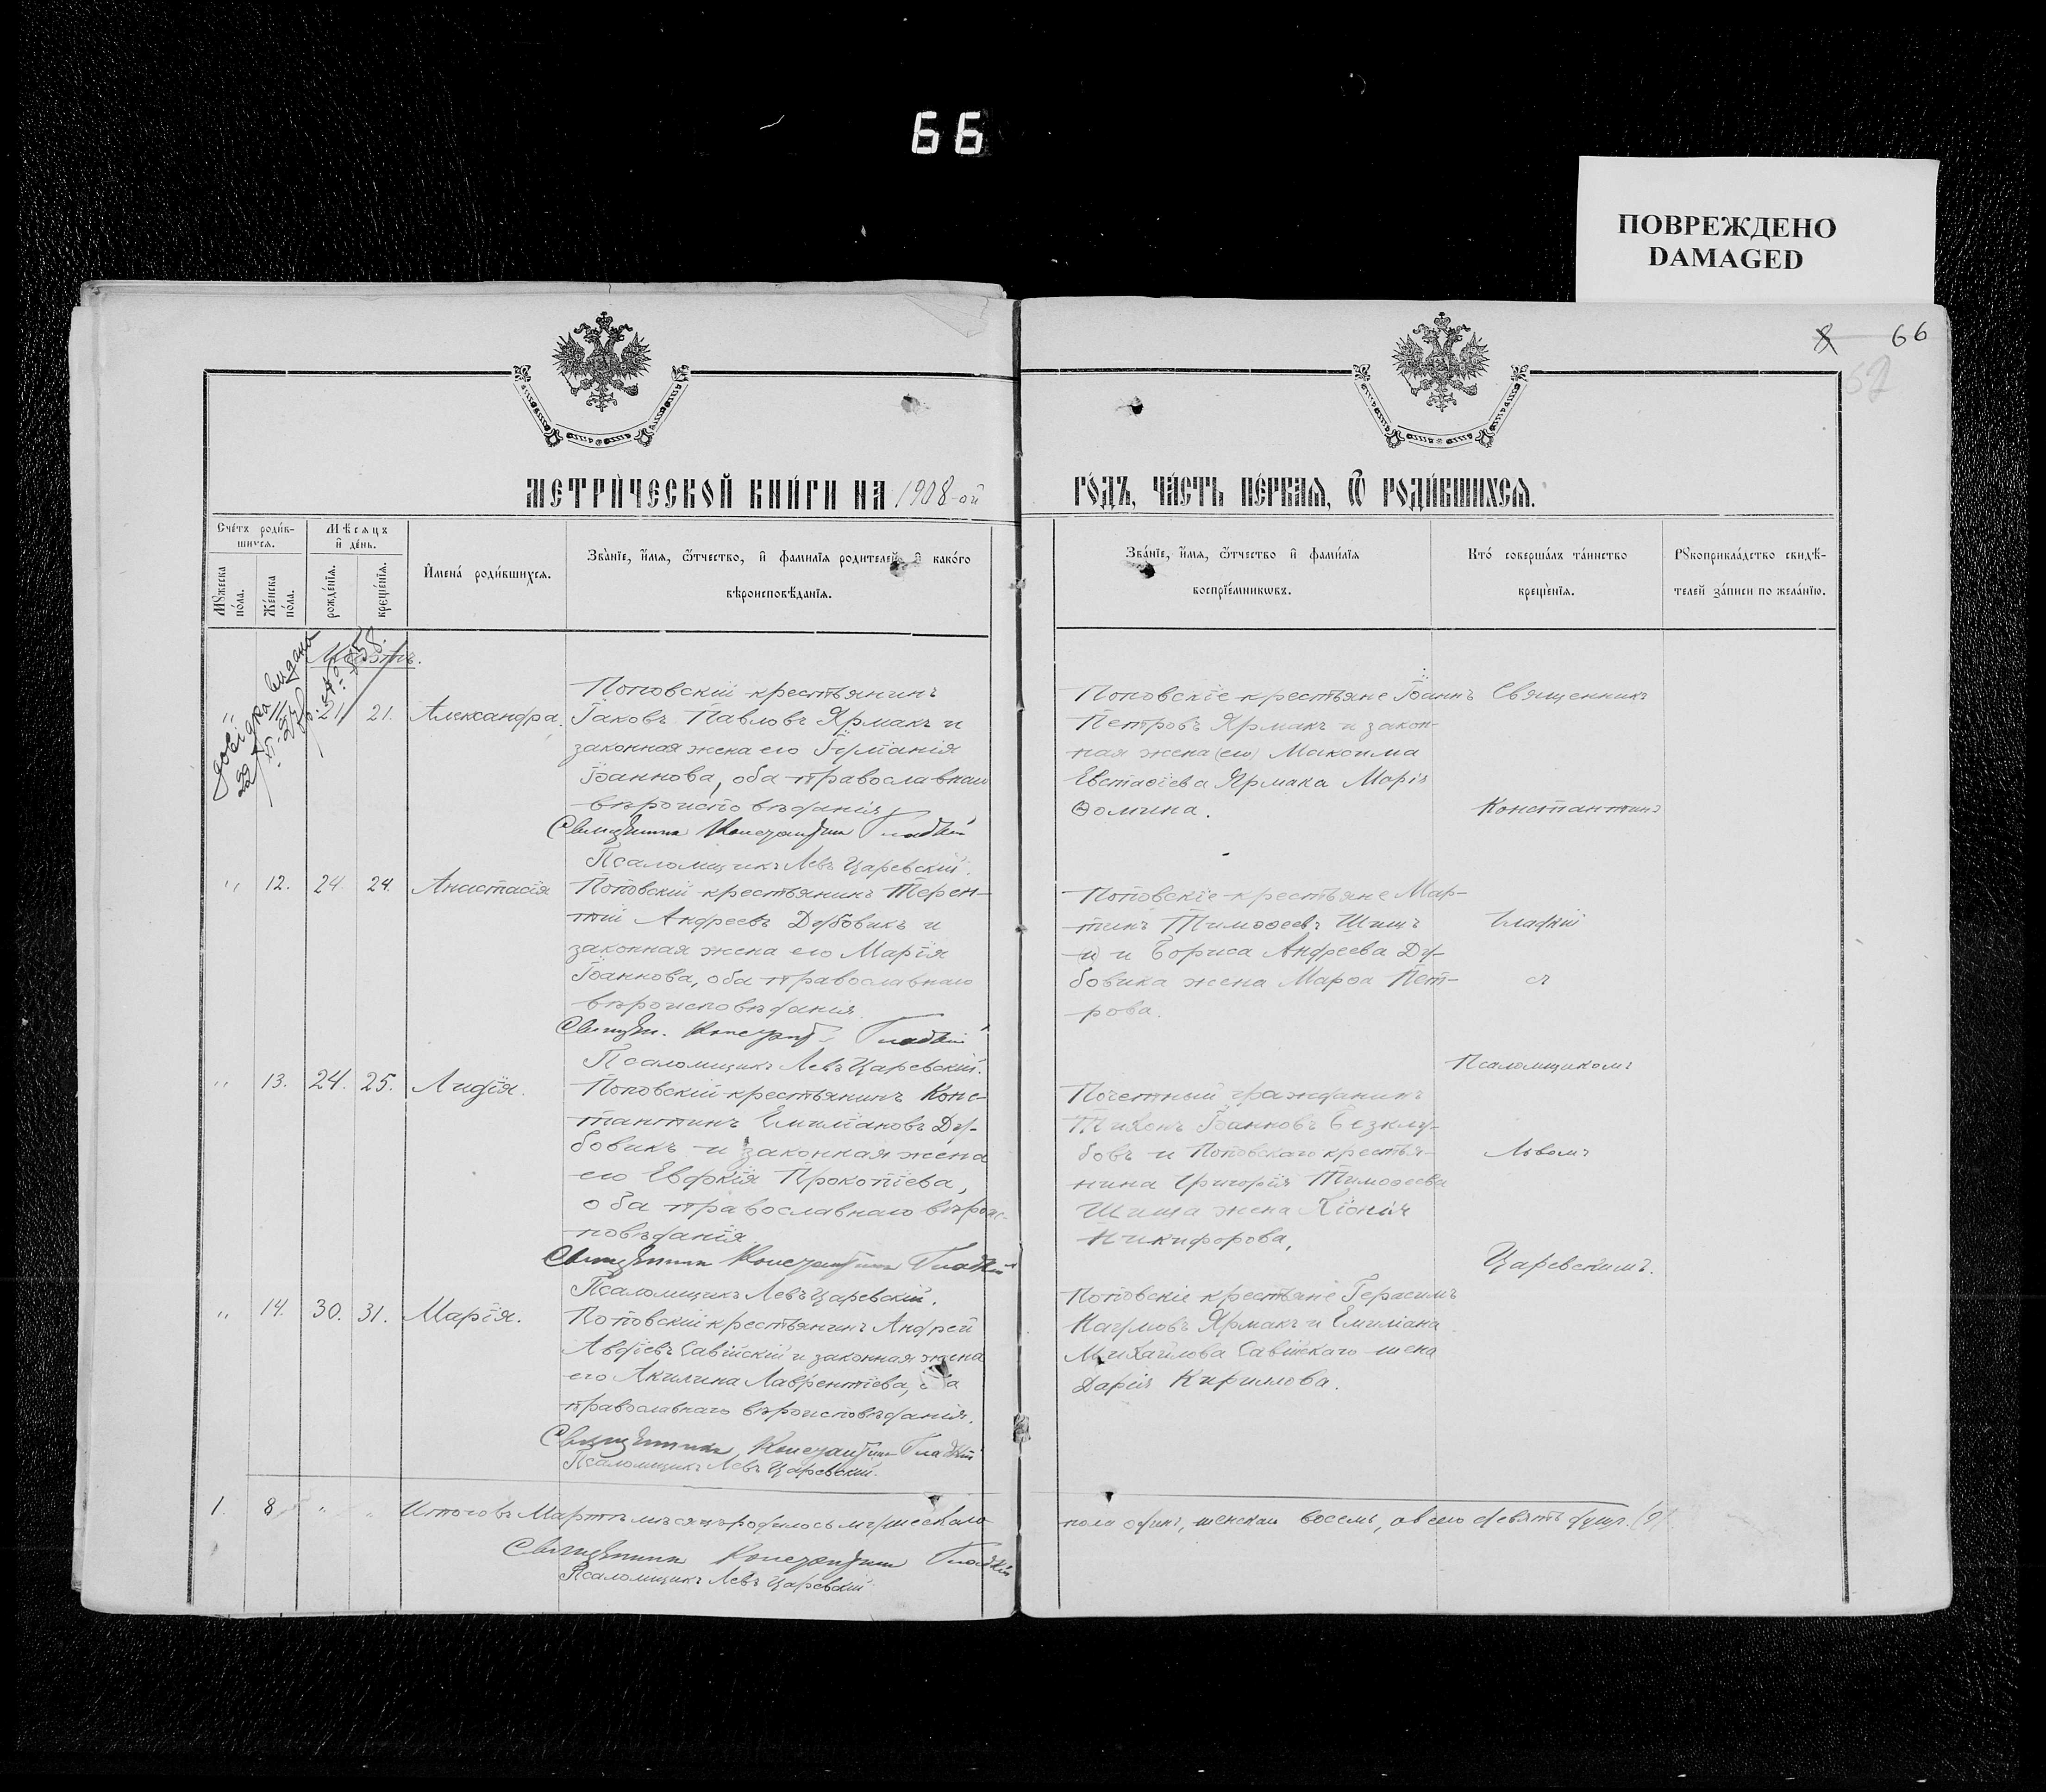 66
ПОВРЕЖДЕНО
DAMAGED
8 66
МЕТРИ́ЧЕСКОЙ КНИ́ГИ НА 1908-ой
ГО́ДЪ, ЧА́СТЬ ПЕ́РВАЯ, Ѡ РОДИ́ВШИХСЯ.
Сче́тъ роди́в-
шихся.
Мѣсяцъ
и де́нь.
Му́жеска по́ла.
Же́нска по́ла.
рожде́нїя.
креще́нїя.
Имена́ роди́вшихся.
Зва́нїе, и́мя, ѻ́тчество, и фами́лїя родителей, и како́го
вѣроисповѣ́данїя.
Зва́нїе, и́мя, ѻ́тчество и фами́лїя
воспрїе́мникѡвъ.
Кто́ соверша́лъ та́инство
креще́нїя.
Рꙋкоприкла́дство свидѣ́-
телей за́писи по жела́нїю.
Мартъ.
21 21. Александра.
Поповскій крестьянинъ
Іаковъ Павловъ Ярмакъ и
законная жена его
Іоаннова, оба православнаго
вѣроисповѣданія
Священникъ Константинъ Гладкій
Псаломщикъ Левъ Царевскій.
Поповскіе крестьяне Іоаннъ
Петровъ Ярмакъ и закон-
ная жена (его) Максима
Евстафіева Ярмака Марія
Ѳомина.
Священникъ
Константинъ
" 12. 24. 24. Анастасія
Поповскій крестьянинъ Терен-
тій Андреевъ Дубовикъ и
законная жена его Марія
Іоаннова, оба православнаго
вѣроисповѣданія.
Священ. Конст. Гладкій
Псаломщикъ Левъ Царевскій.
Поповскіе крестьяне Мар-
тинъ Тимоѳеевъ Шищъ
и) и Бориса Андреева Ду-
бовика жена Марѳа Пет-
рова.
Гладкій
съ
Псаломщикомъ
" 13. 24. 25. Лидія.
Поповскій крестьянинъ Конс-
тантинъ Емиліановъ Ду-
бовикъ и законная жена
его Евдокія Прокопіева,
оба православнаго вѣроис-
повѣданія.
Священникъ Константинъ Гладкій
Псаломщикъ Левъ Царевскій.
Почетный гражданинъ
Тихонъ Іоанновъ Безклу-
бовъ и Поповскаго крестья-
нина Григорія Тимоѳеева
Шища жена
Никифорова.
Львомъ
Царевскимъ.
" 14. 30. 31. Марія.
Поповскій крестьянинъ Андрей
Авдіевъ Савійскій и законная жена
его Акилина Лаврентіева, оба
православнаго вѣроисповѣданія.
Священникъ Константинъ Гладкій
Псаломщикъ Левъ Царевскій.
Поповскіе крестьяне Герасимъ
Наумовъ Ярмакъ и Емиліана
Михайлова Савійскаго жена
Дарія Кириллова.
1. 8 " " Итого въ Мартѣ мѣсяцѣ родилось мужескаго
пола одинъ, женскаго восемь, а всего девять душъ. (9).
Священникъ Константинъ Гладкій
Псаломщикъ Левъ Царевскій